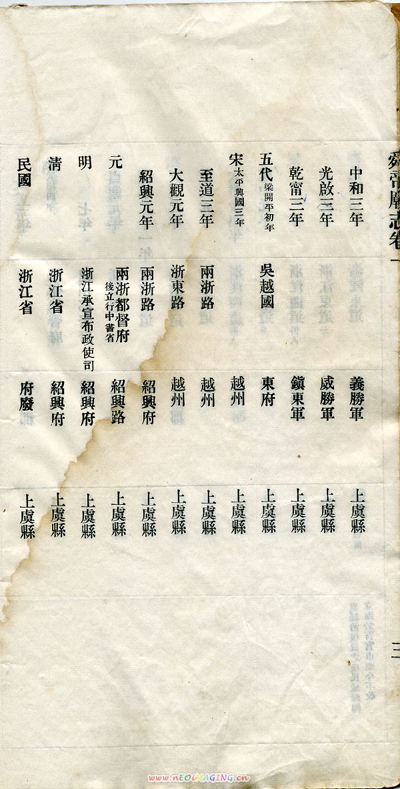 舜帝廟志卷一
三
中和三年 義勝軍 上虞縣
光啟三年 威勝軍 上虞縣
乾甯三年 鎭東軍 上虞縣
五代梁開平初年 吳越國 東府 上虞縣
宋太平興國三年 越州 上虞縣
至道三年 兩浙路 越州 上虞縣
大觀元年 浙東路 越州 上虞縣
紹興元年 兩浙路 紹興府 上虞縣
元 兩浙都督府後立行中書省 紹興路 上虞縣
明 浙江承宣布政使司 紹興府 上虞縣
淸 浙江省 紹興府 上虞縣
民國 浙江省 府廢 上虞縣